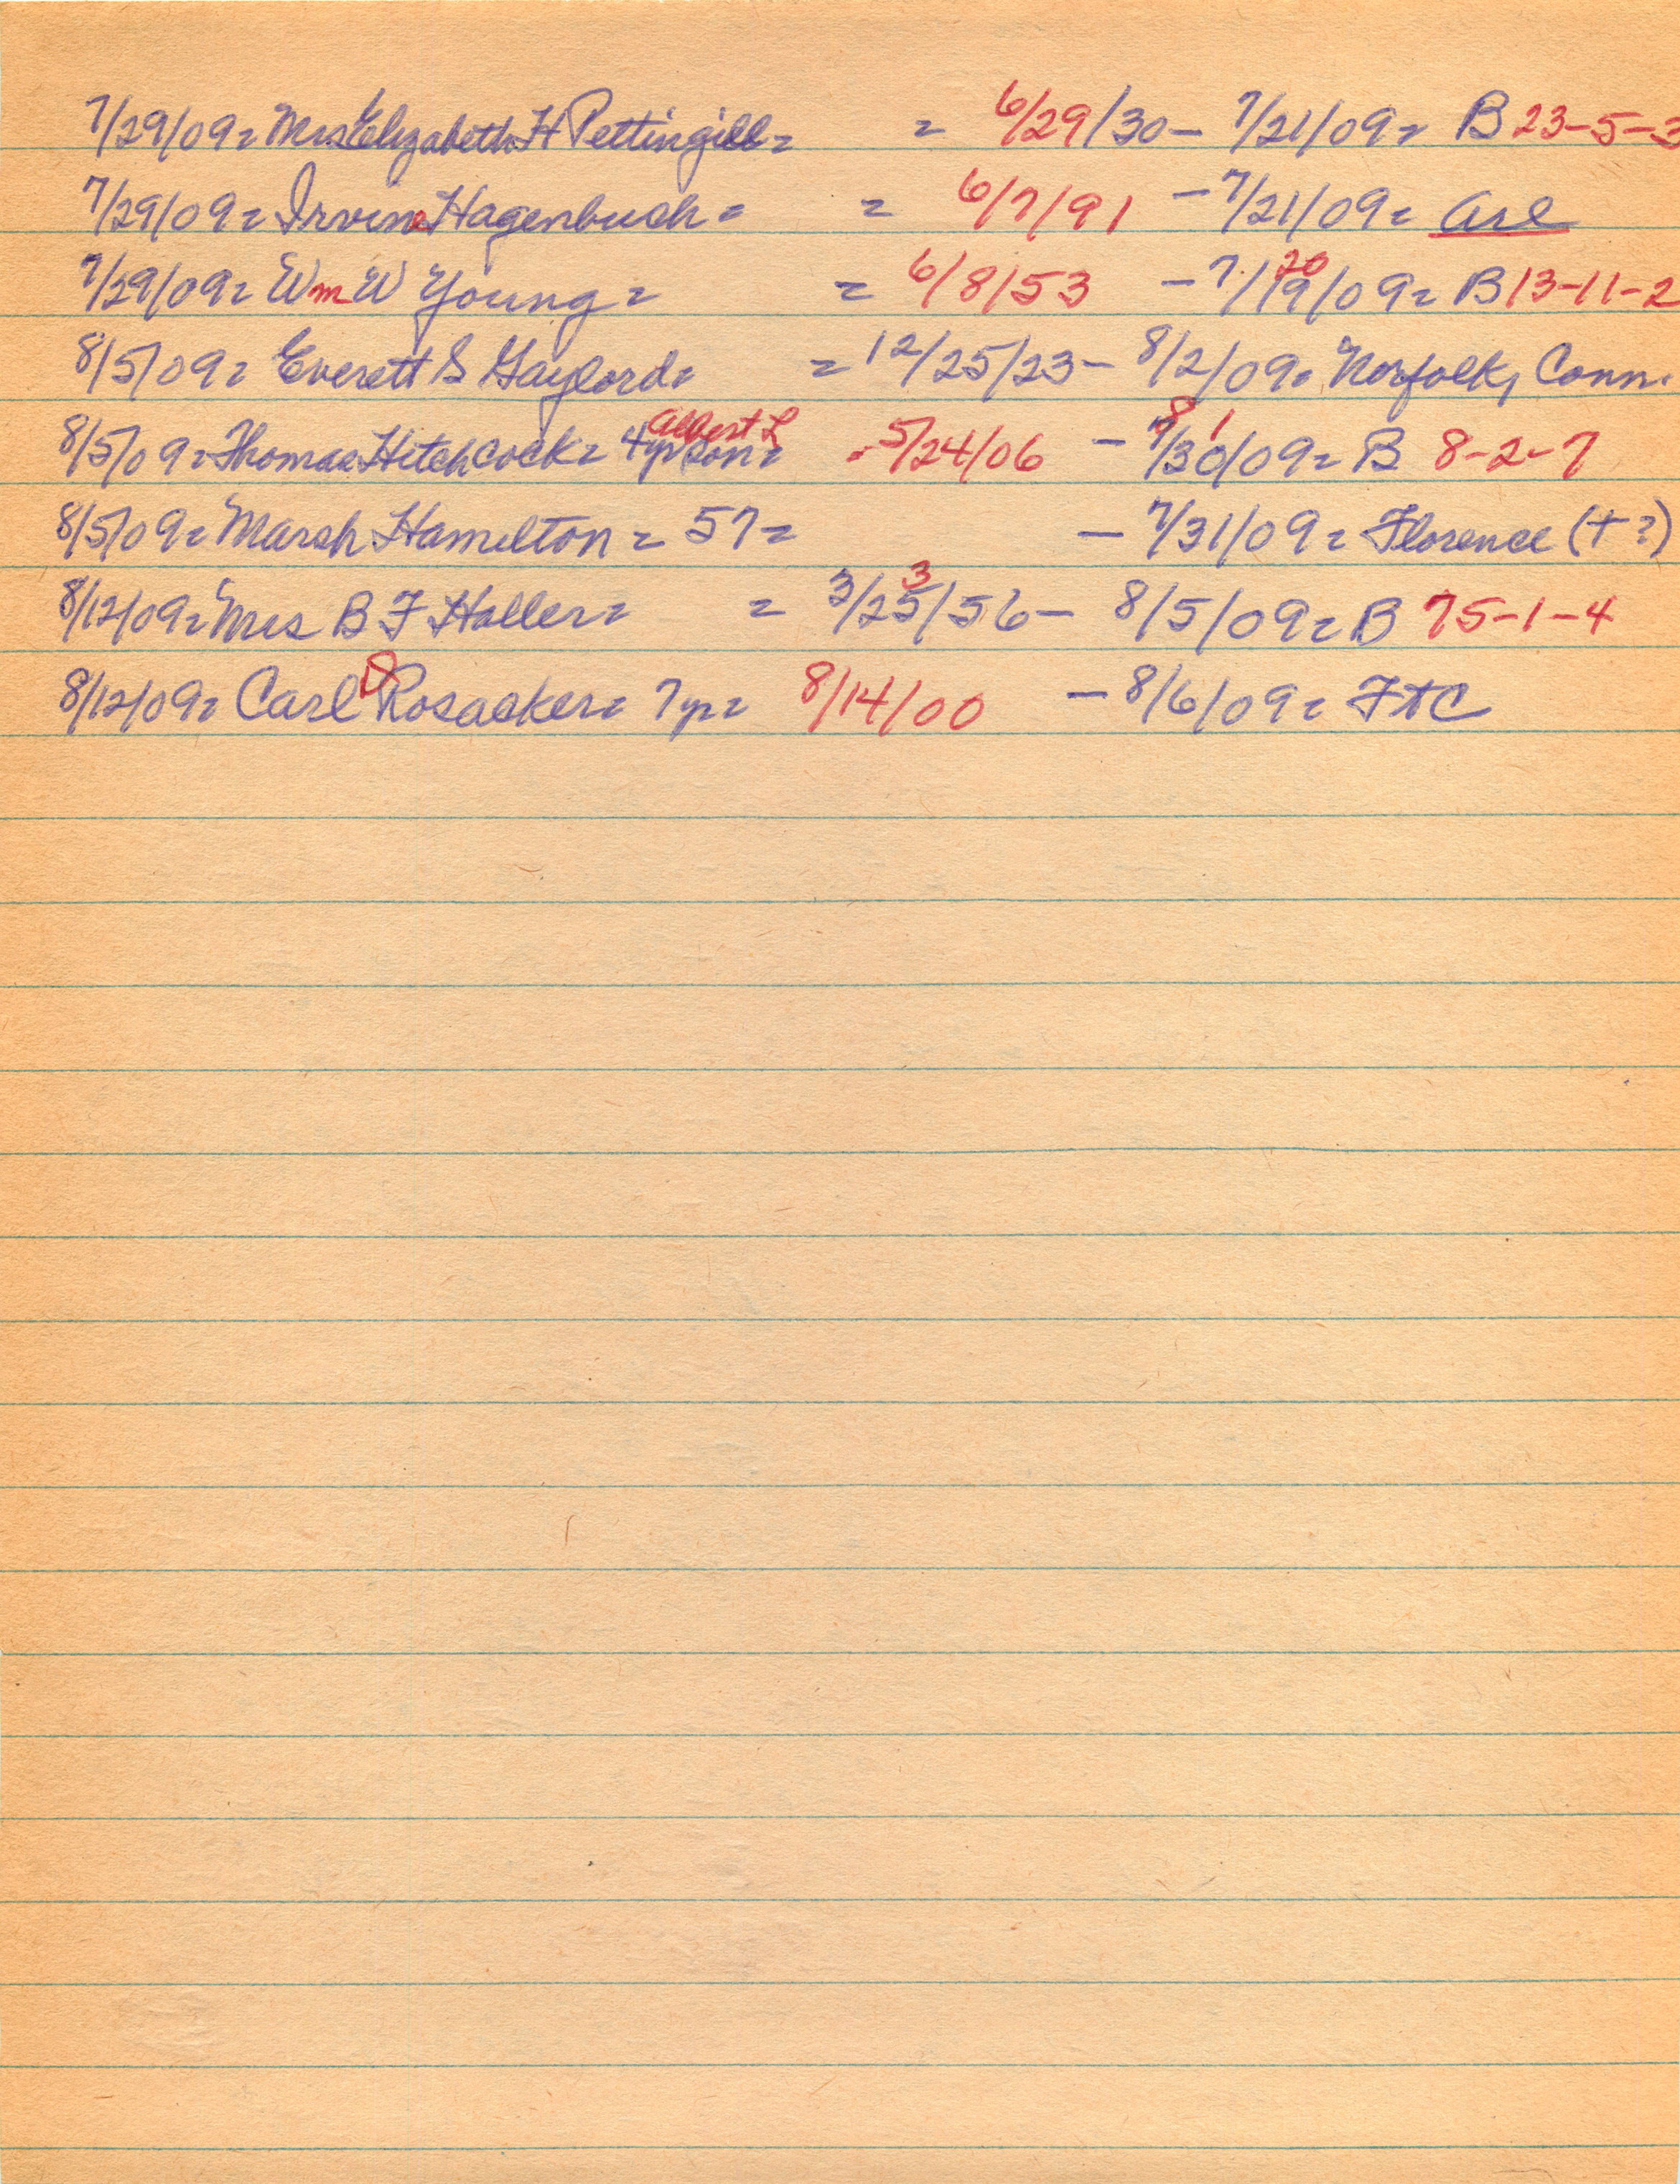 7/29/09= Mrs Elizabeth H Pettingill= = 6/29/30 - 7/21/09= B 23-5-3
7/29/09= Irvine Hagenbuch= = 6/7/91 - 7/21/09= Arl
7/29/09= Wm W Young= = 6/8/53 - 7/19/09= B 13-11-2
20
8/5/09= Everett S Gaylord= = 12/25/23 - 8/2/09= Norfolk, Conn.
Albert L 8 1
8/5/09= Thomas Hitchcock= 4yr son= - 5/24/06 - 7/30/09= B 8-2-7
8/5/09= Marsh Hamilton= 57= - 7/31/09= Florence (+?)
3
8/12/09= Mrs B F Haller= = 3/25/56 - 8/5/09= B 75-1-4
8/12/09= Carl D Rosacker= 7yr= 8/14/00 - 8/6/09= FtC